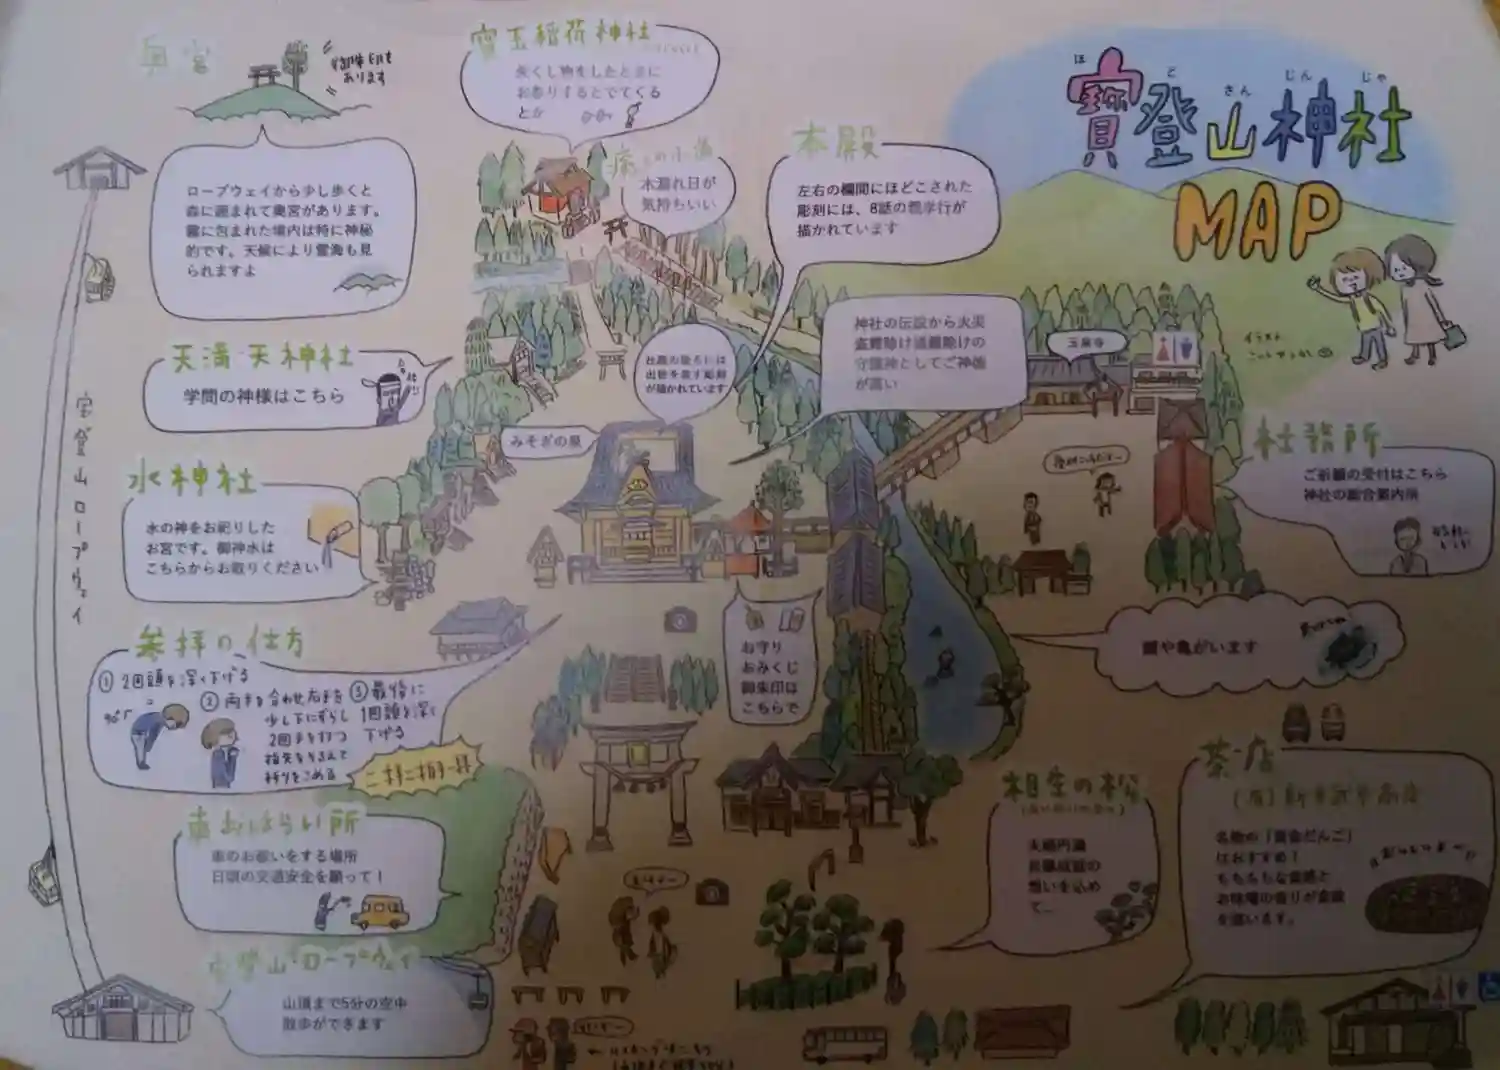 奥宮
御朱印も
あります
ロープウェイから少し歩くと
森に囲まれて奥宮があります。
霧に包まれた境内は特に神秘
的です。天候により雲海も見
られますよ
寶玉稲荷神社
失くし物をしたときに
お参りするとでてくる
とか
木漏れ日が
気持ちいい
本殿
左右の欄間にほどこされた
彫刻には、8話の親孝行が
描かれています
ほ ど さん じん じゃ
寶登山神社
MAP
イラスト
天満天神社
学問の神様はこちら
神社の伝説から火災
盗難除け諸難除けの
守護神としてご神徳
が高い
玉泉寺
みそぎの泉
社務所
ご祈願の受付はこちら
神社の総合案内所
水神社
水の神をお祀りした
お宮です。御神水は
こちらからお取りください
宝登山ロープウェイ
参拝の仕方
① 2回頭を深く下げる
90°
② 両手を合わせ右手を
少し下にずらし
2回手を打つ
指先をそろえて
祈りをこめる
③ 最後に
1回頭を深く
下げる
二拝二拍手一拝
お守り
おみくじ
御朱印は
こちらで
鯉や亀がいます
車おはらい所
車のお祓いをする場所
日頃の交通安全を願って!
相生の松
夫婦円満
想いを込め
て…
茶店
名物の「黄金だんご」
はおすすめ!
もちもちな食感と
お味噌の香りが食欲
を誘います。
宝登山ロープウェイ
山頂まで5分の空中
散歩ができます